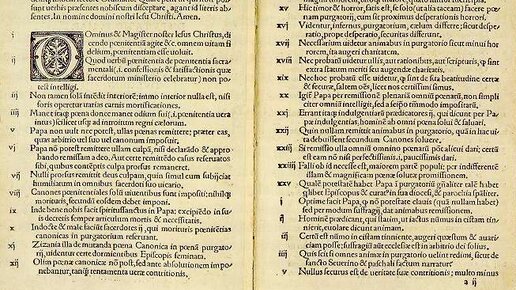 bus præsentes nobiscum disceptare, agant id literis ab-
sentes. In nomine domini nostri Iesu Christi. Amen.
Ominus & Magister noster Iesus Christus, di-
cendo pœnitentiā agite &c. omnem uitam fi
delium, pœnitentiam esse uoluit.
ij Quod uerbū pœnitentia de pœnitentia sacra-
mentali .i. confessiõis & satisfactiõis quæ
sacerdotum ministerio celebratur) non po-
test intelligi.
iij Non tamen solā intēdit interiorē: immo interior nulla est, nisi
foris operetur uarias carnis mortificationes.
iiij Manet itaqɜ pœna donec manet odium sui .i. pœnitentia uera
intus) scilicet usqɜ ad introitum regni cœlorum.
v Papa non uult nec potest, ullas pœnas remittere: præter eas,
quas arbitrio uel suo uel canonum imposuit.
vj Papa nõ potest remittere ullam culpã, nisi declarādo & appro-
bando remissam a deo. Aut certe remittēdo casus reseruatos
sibi, quibus cõtemptis culpa prorsus remaneret.
vij Nulli prorsus remittit deus culpam, quin simul eum subijciat
humiliatum in omnibus sacerdoti suo uicario.
viij Canones pœnitentiales solū uiuentibus sunt impositi: nihilqɜ
morituris, secundū eosdem debet imponi.
ix Inde bene nobis facit spiritussanctus in Papa: excipiēdo in su-
is decretis semper articulum mortis & necessitatis.
x Indocte & male faciunt sacerdotes ij, qui morituris pœnitētias
canonicas in purgatorium reseruant.
xj Zizania illa de mutanda pœna Canonica in pœnã purgato-
rij, uidentur certe dormientibus Episcopis seminata.
xij Olim pœnæ canonicæ nõ post, sed ante absolutionem im-
ponebantur, tanq̃ tentamenta ueræ contritionis.
xv
pœnam purgatorij, cum sit proximus desperationis horrori.
xvj Videntur, infernus, purgatorium, cælum differre: sicut despe
ratio, prope desperatio, securitas differunt.
xvij Necessarium uidetur animabus in purgatorio sicut minui hor
rorem, ita augeri charitatem.
xviij Nec probatum uidetur ullis, aut rationibus aut scripturis, q sint
extra statum meriti seu augendæ charitatis.
xix Nec hoc probatū esse uidetur, q sint de sua beatitudine certæ
& securæ, saltem oēs, licet nos certissimi simus.
xx Igit Papa per remissionē plenariã omniū pœnarum, non sim-
pliciter omniū intelligit, sed a seipso tm̃modo impositarū.
xxj Errant itaqɜ indulgentiarū prædicatores ij, qui dicunt per Pa-
pæ indulgentias, hominē ab omni pœna solui & saluari.
xxij Quin nullam remittit animabus in purgatorio, quã in hac ui-
ta debuissent secundum Canones soluere.
xxiij Si remissio ulla omniū omnino pœnarū pōt alicui dari: certū
est eam non nisi perfectissimis .i. paucissimis dari.
xxiiij Falli ob id necesse est, maiorem partē populi: per indifferentē
illam & magnificam pœnæ solutæ promissionem.
xxv Qualē potestatē habet Papa in purgatoriū gñaliter talē habet
quilibet Episcopus & curat⁹ in sua diocesi, & parochia spāliter.
j Optime facit Papa, q nõ potestate clauis (quam nullam habet)
sed per modum suffragij, dat animabus remissionem.
ij Hominē prædicant, qui statim, ut iactus nūmus in cistam tinni-
erit, euolare dicunt animam.
iij Certū est nūmo in cistam tinniente, augeri quæstum & auari-
ciam posse. suffragiū aūt ecclesiæ est in arbitrio dei solius.
iiij Quis scit si omnes animæ in purgatorio uelint redimi, sicut de
sancto Seuerino & paschali factum narratur.
v Nullus securus est de ueritate suæ contritionis; multo minus
a ij